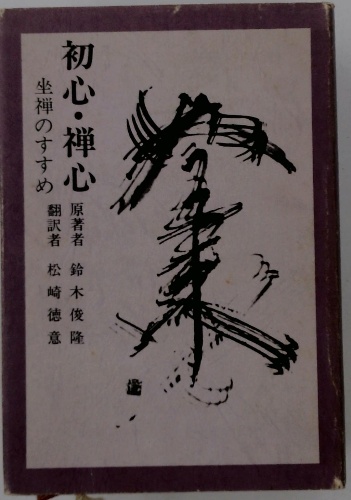 初心・禅心
坐禅のすすめ
原著者 鈴木俊隆
翻訳者 松崎徳意